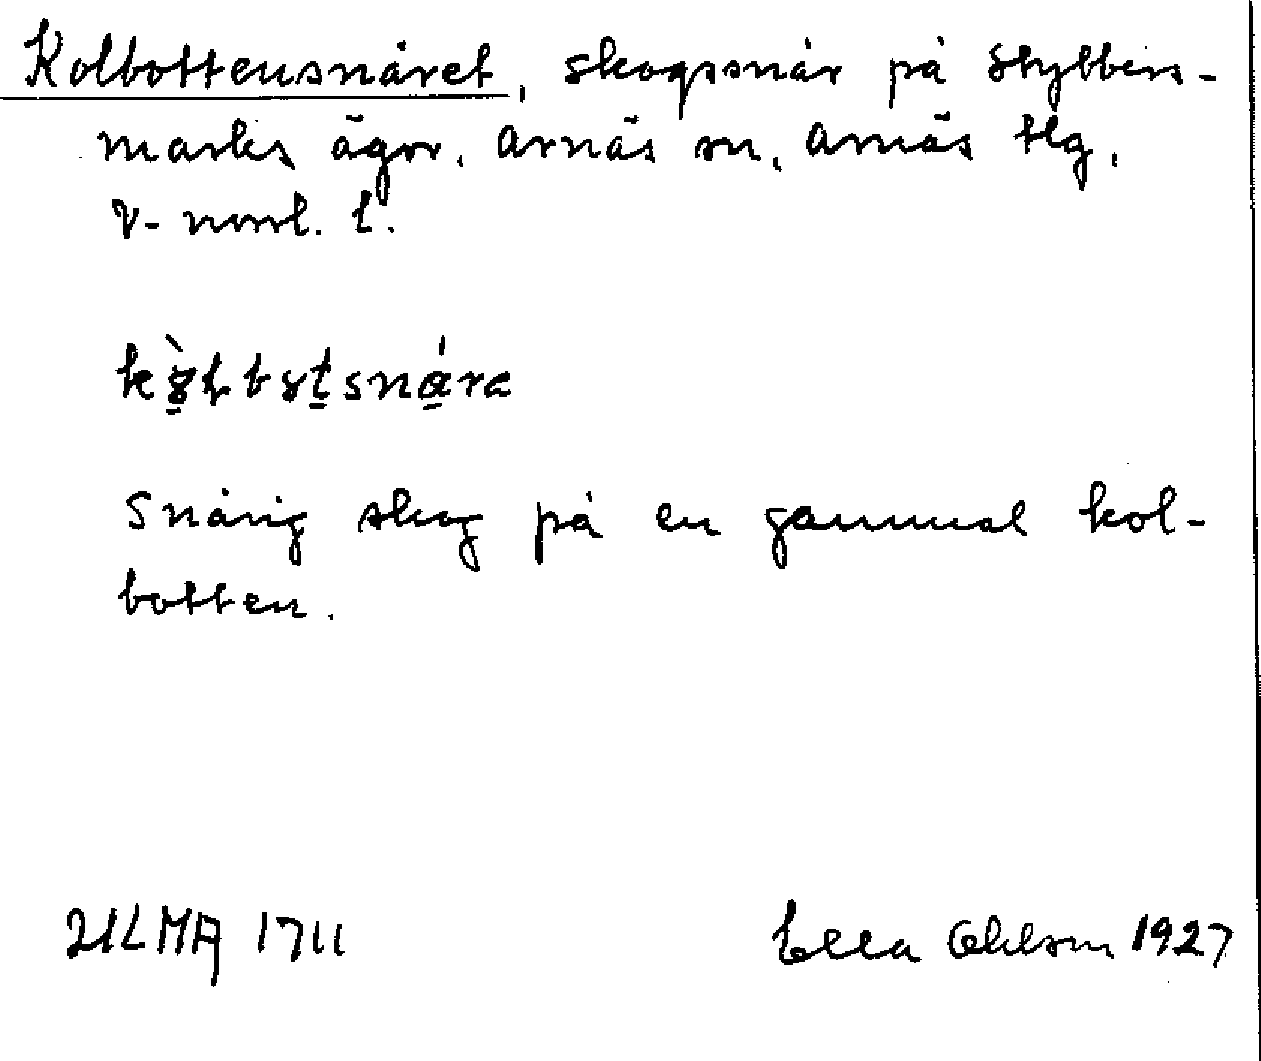 Kolbottensnåret, skogssnår på Stybbers-
marks ägor, Arnäs sn, Arnäs tlg,
V-norrl. l.
Snårig skog på en gammal kol-
botten.
ULMA 1711 Ella Ohlson 1927